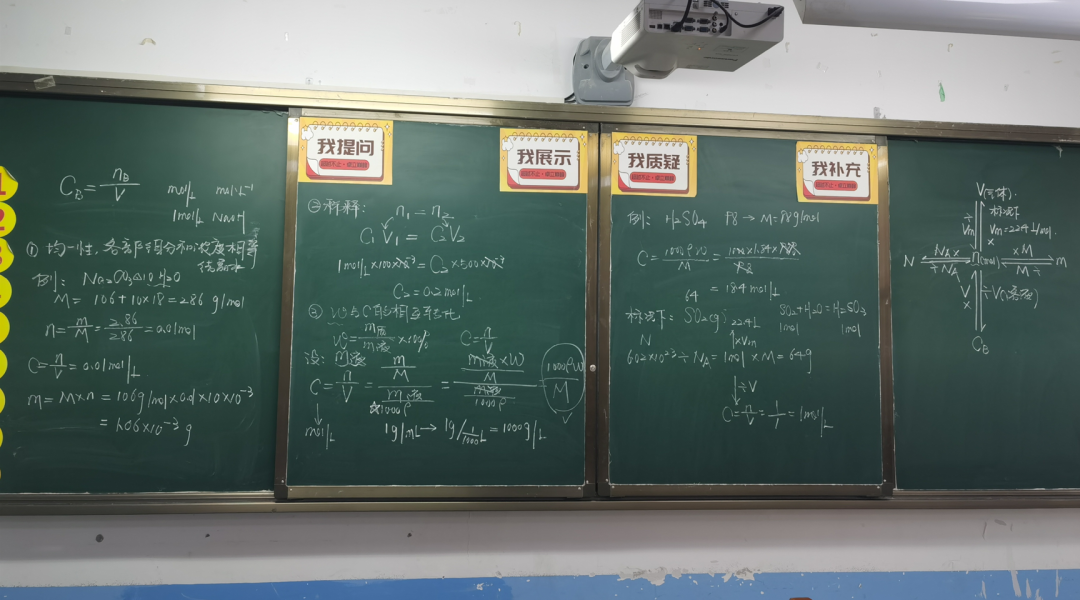 C_B = n_B/V mol/L mol·L⁻¹
1mol/L NaOH
① 均一性,各部分的浓度相等
例:Na₂CO₃·10H₂O
M = 106+10×18=286 g/mol
n=m/M=2.86/286=0.01mol
C=n/V=0.01mol/L
m=M×n=106g/mol×0.01×10×10⁻³
=1.06×10⁻³ g
我提问
我展示
②稀释:
n₁ = n₂
C₁V₁ = C₂V₂
1mol/L×100×10⁻³=C₂×500×10⁻³
C₂=0.2mol/L
③ W与C的相互转化
W=m质/m液×100% C=n/V
设:m液
C=n/V=(m/M)/(m液/1000ρ)=(m液×W/M)/(m液/1000ρ)=1000ρW/M
mol/L 1g/mL→1g/(1/1000)L=1000g/L
我质疑
我补充
例:H₂SO₄ 98→M=98g/mol
C=1000ρW/M=1000×1.84×98%/98
=18.4mol/L
64
标况下:SO₂(g) 22.4L SO₂+H₂O=H₂SO₃
1mol 1mol
N ×Vm
6.02×10²³÷N_A=1mol×M=64g
÷V
C=n/V=1/1=1mol/L
V(气体)
标况下
÷Vm Vm=22.4L/mol
×
N N_A× ÷N_A n(mol) ×M M÷ m
V× ÷V(溶液)
C_B